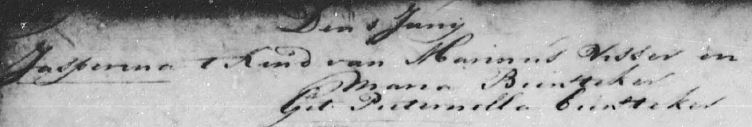 Den 8 Junij
Jasperina t Kind van Marinus Visser en
Maria Biersteker
Get Pieternella Biersteker